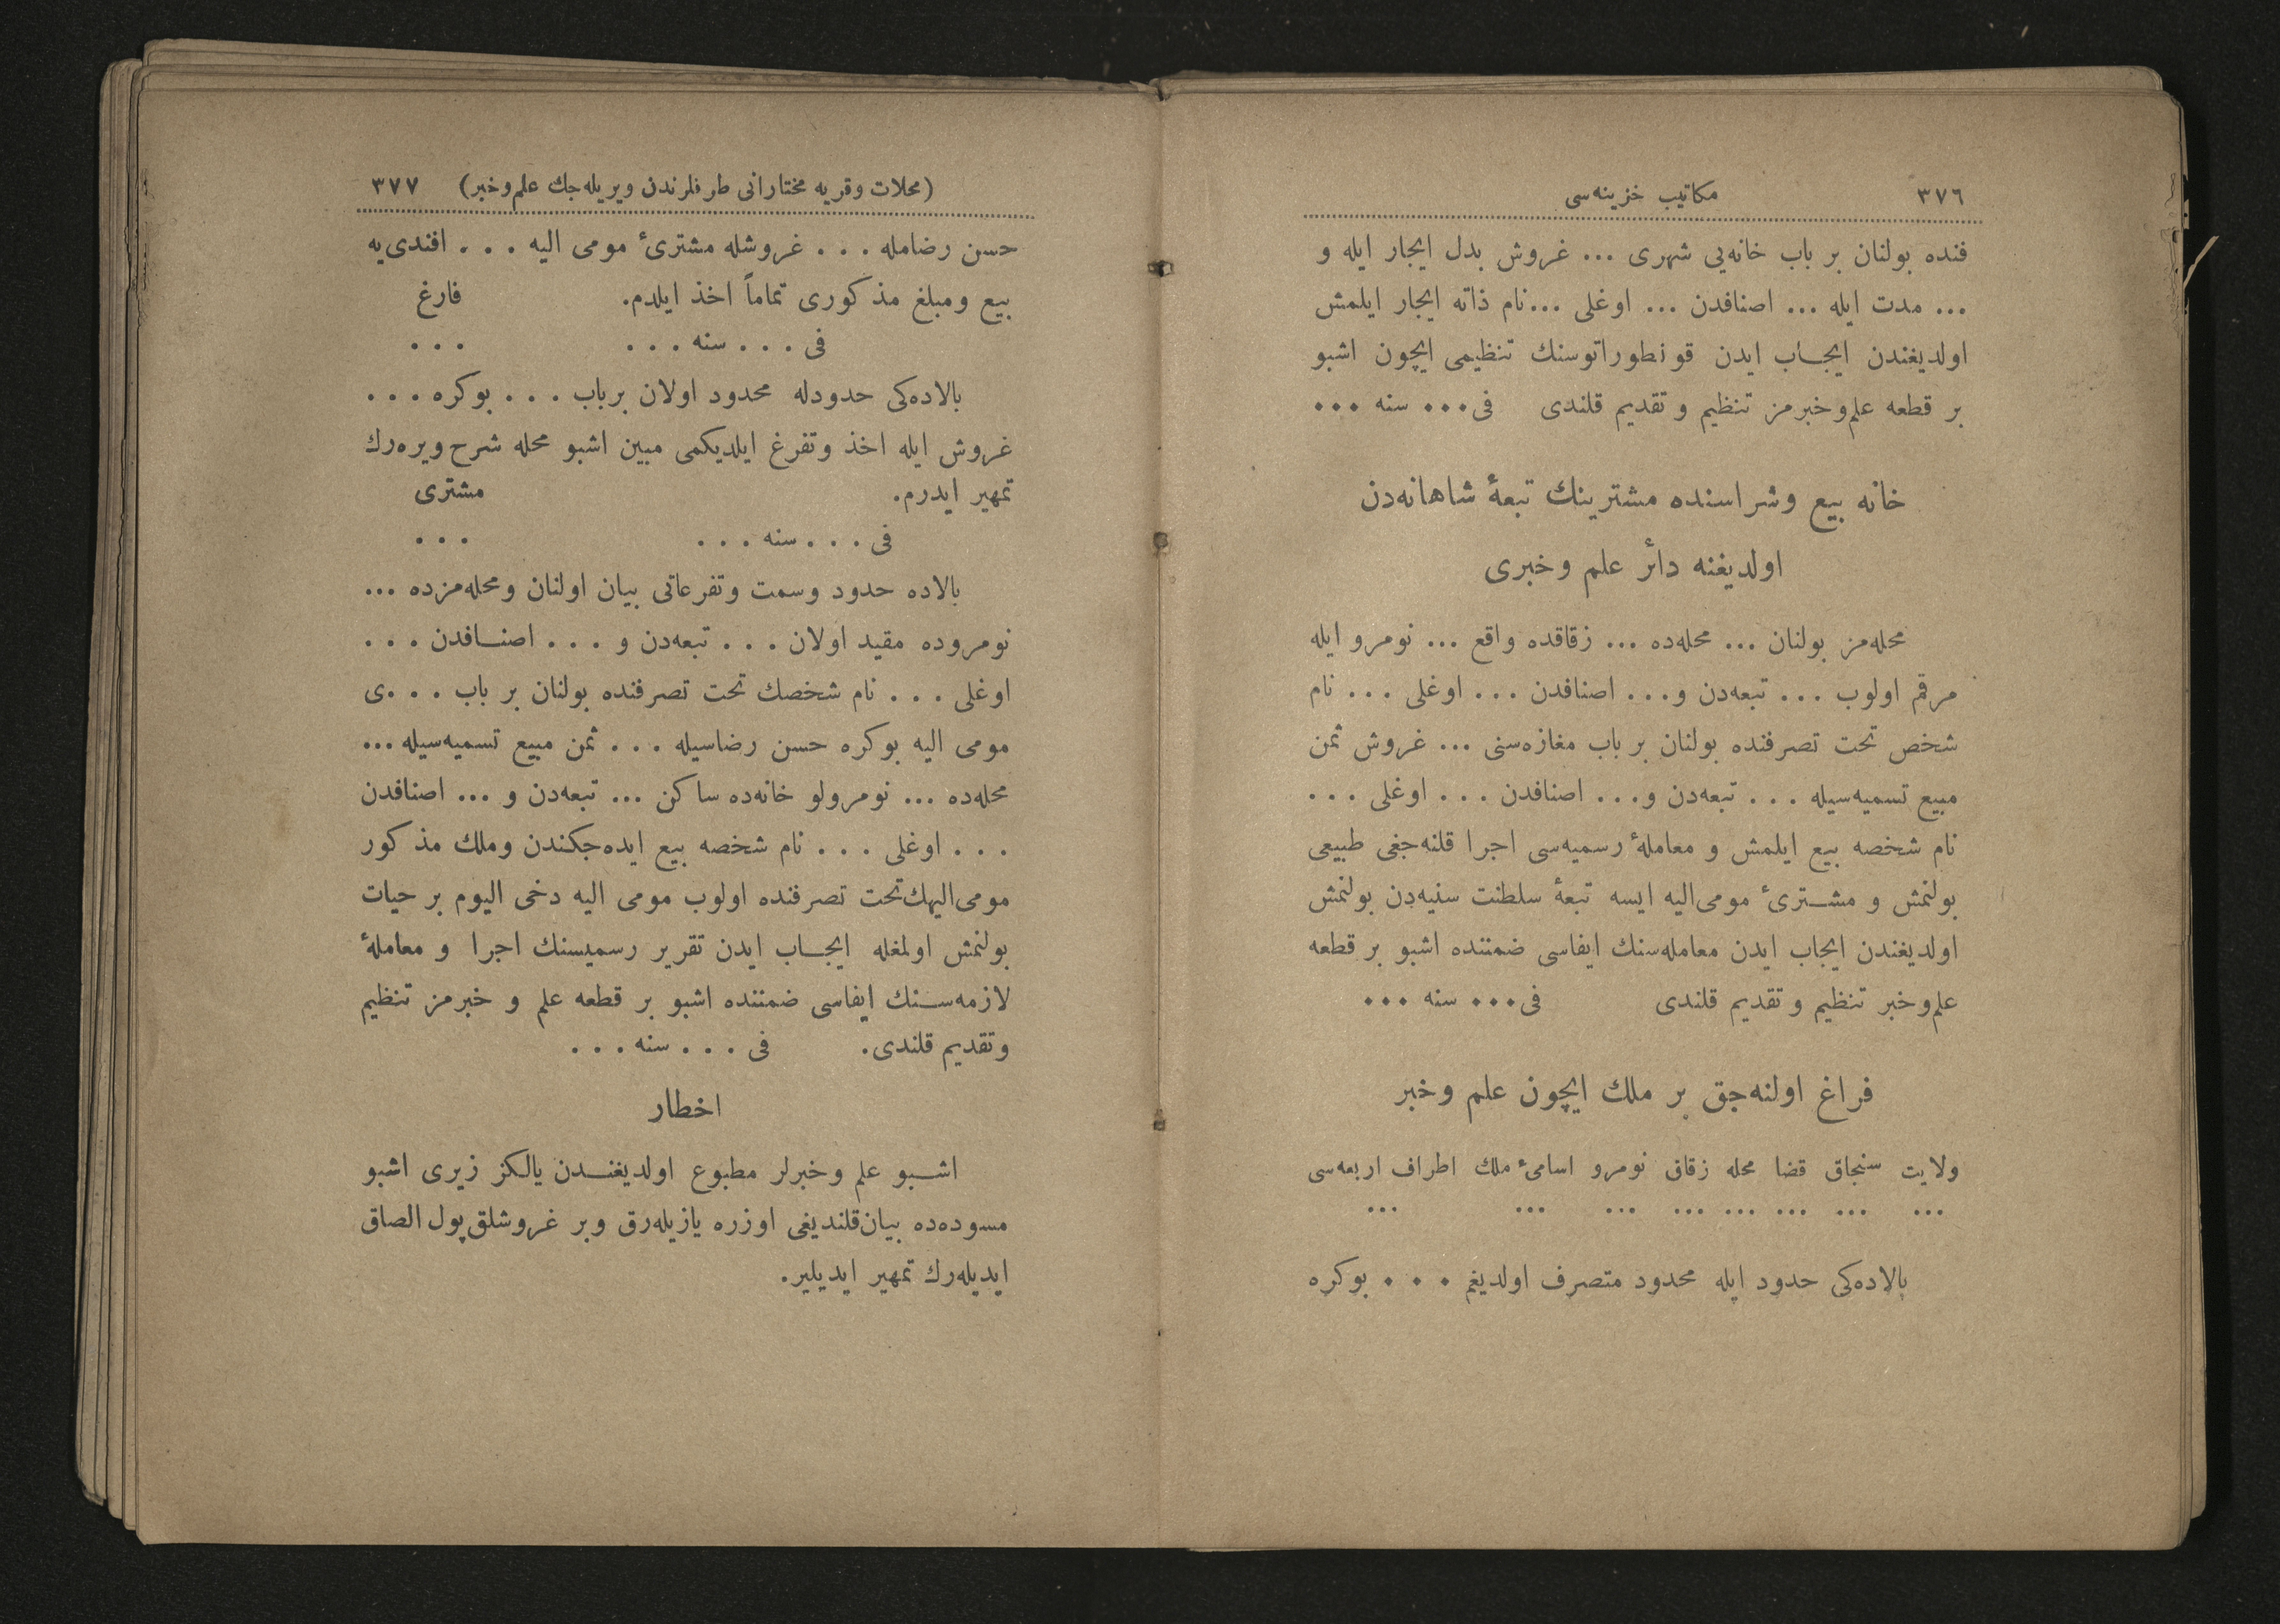 ٣٧٦ مكاتيب خزينه‌سی
فنده بولنان بر باب خانه‌یی شهری ... غروش بدل ایجار ایله و
... مدت ایله ... اصنافدن ... اوغلی ... نام ذاته ایجار ایلمش
اولدیغندن ایجاب ایدن قونطوراتوسنك تنظیمی ایچون اشبو
بر قطعه علم‌وخبرمز تنظیم و تقدیم قلندی فی ... سنه ...
خانه بیع وشراسنده مشترینك تبعهٔ شاهانه‌دن
اولدیغنه دائر علم وخبری
محله‌مز بولنان ... محله‌ده ... زقاقده واقع ... نومرو ایله
مرقم اولوب ... تبعه‌دن و ... اصنافدن ... اوغلی ... نام
شخص تحت تصرفنده بولنان بر باب مغازه‌سنی ... غروش ثمن
مبیع تسمیه‌سیله ... تبعه‌دن و ... اصنافدن ... اوغلی ...
نام شخصه بیع ایلمش و معاملهٔ رسمیه‌سی اجرا قلنه‌جغی طبیعی
بولنمش و مشتریٔ مومی‌الیه ایسه تبعهٔ سلطنت سنیه‌دن بولنمش
اولدیغندن ایجاب ایدن معامله‌سنك ایفاسی ضمننده اشبو بر قطعه
علم‌وخبر تنظیم و تقدیم قلندی فی ... سنه ...
فراغ اولنه‌جق بر ملك ایچون علم وخبر
ولایت سنجاق قضا محله زقاق نومرو اسامیٔ ملك اطراف اربعه‌سی
... ... ... ... ... ... ... ...
بالاده‌کی حدود ایله محدود متصرف اولدیغم ... بوکره
(محلات وقریه مختارانی طرفلرندن ویریله‌جك علم‌وخبر) ٣٧٧
حسن رضامله ... غروشله مشتریٔ مومی الیه ... افندی‌یه
بیع ومبلغ مذکوری تماماً اخذ ایلدم. فارغ
فی ... سنه ... ...
بالاده‌کی حدودله محدود اولان برباب ... بوکره ...
غروش ایله اخذ وتفرغ ایلدیکمی مبین اشبو محله شرح ویره‌رك
تمهیر ایدرم. مشتری
فی ... سنه ... ...
بالاده حدود وسمت وتفرعاتی بیان اولنان ومحله‌مزده ...
نومروده مقید اولان ... تبعه‌دن و ... اصنافدن ...
اوغلی ... نام شخصك تحت تصرفنده بولنان بر باب ...ی
مومی الیه بوکره حسن رضاسیله ... ثمن مبیع تسمیه‌سیله ...
محله‌ده ... نومرولو خانه‌ده ساکن ... تبعه‌دن و ... اصنافدن
... اوغلی ... نام شخصه بیع ایده‌جکندن وملك مذکور
مومی‌الیهك تحت تصرفنده اولوب مومی الیه دخی الیوم بر حیات
بولنمش اولمغله ایجاب ایدن تقریر رسمیسنك اجرا و معاملهٔ
لازمه‌سنك ایفاسی ضمننده اشبو بر قطعه علم و خبرمز تنظیم
وتقدیم قلندی. فی ... سنه ...
اخطار
اشبو علم وخبرلر مطبوع اولدیغندن یالکز زیری اشبو
مسوده‌ده بیان‌قلندیغی اوزره یازیله‌رق وبر غروشلق‌پول الصاق
ایدیله‌رك تمهیر ایدیلیر.